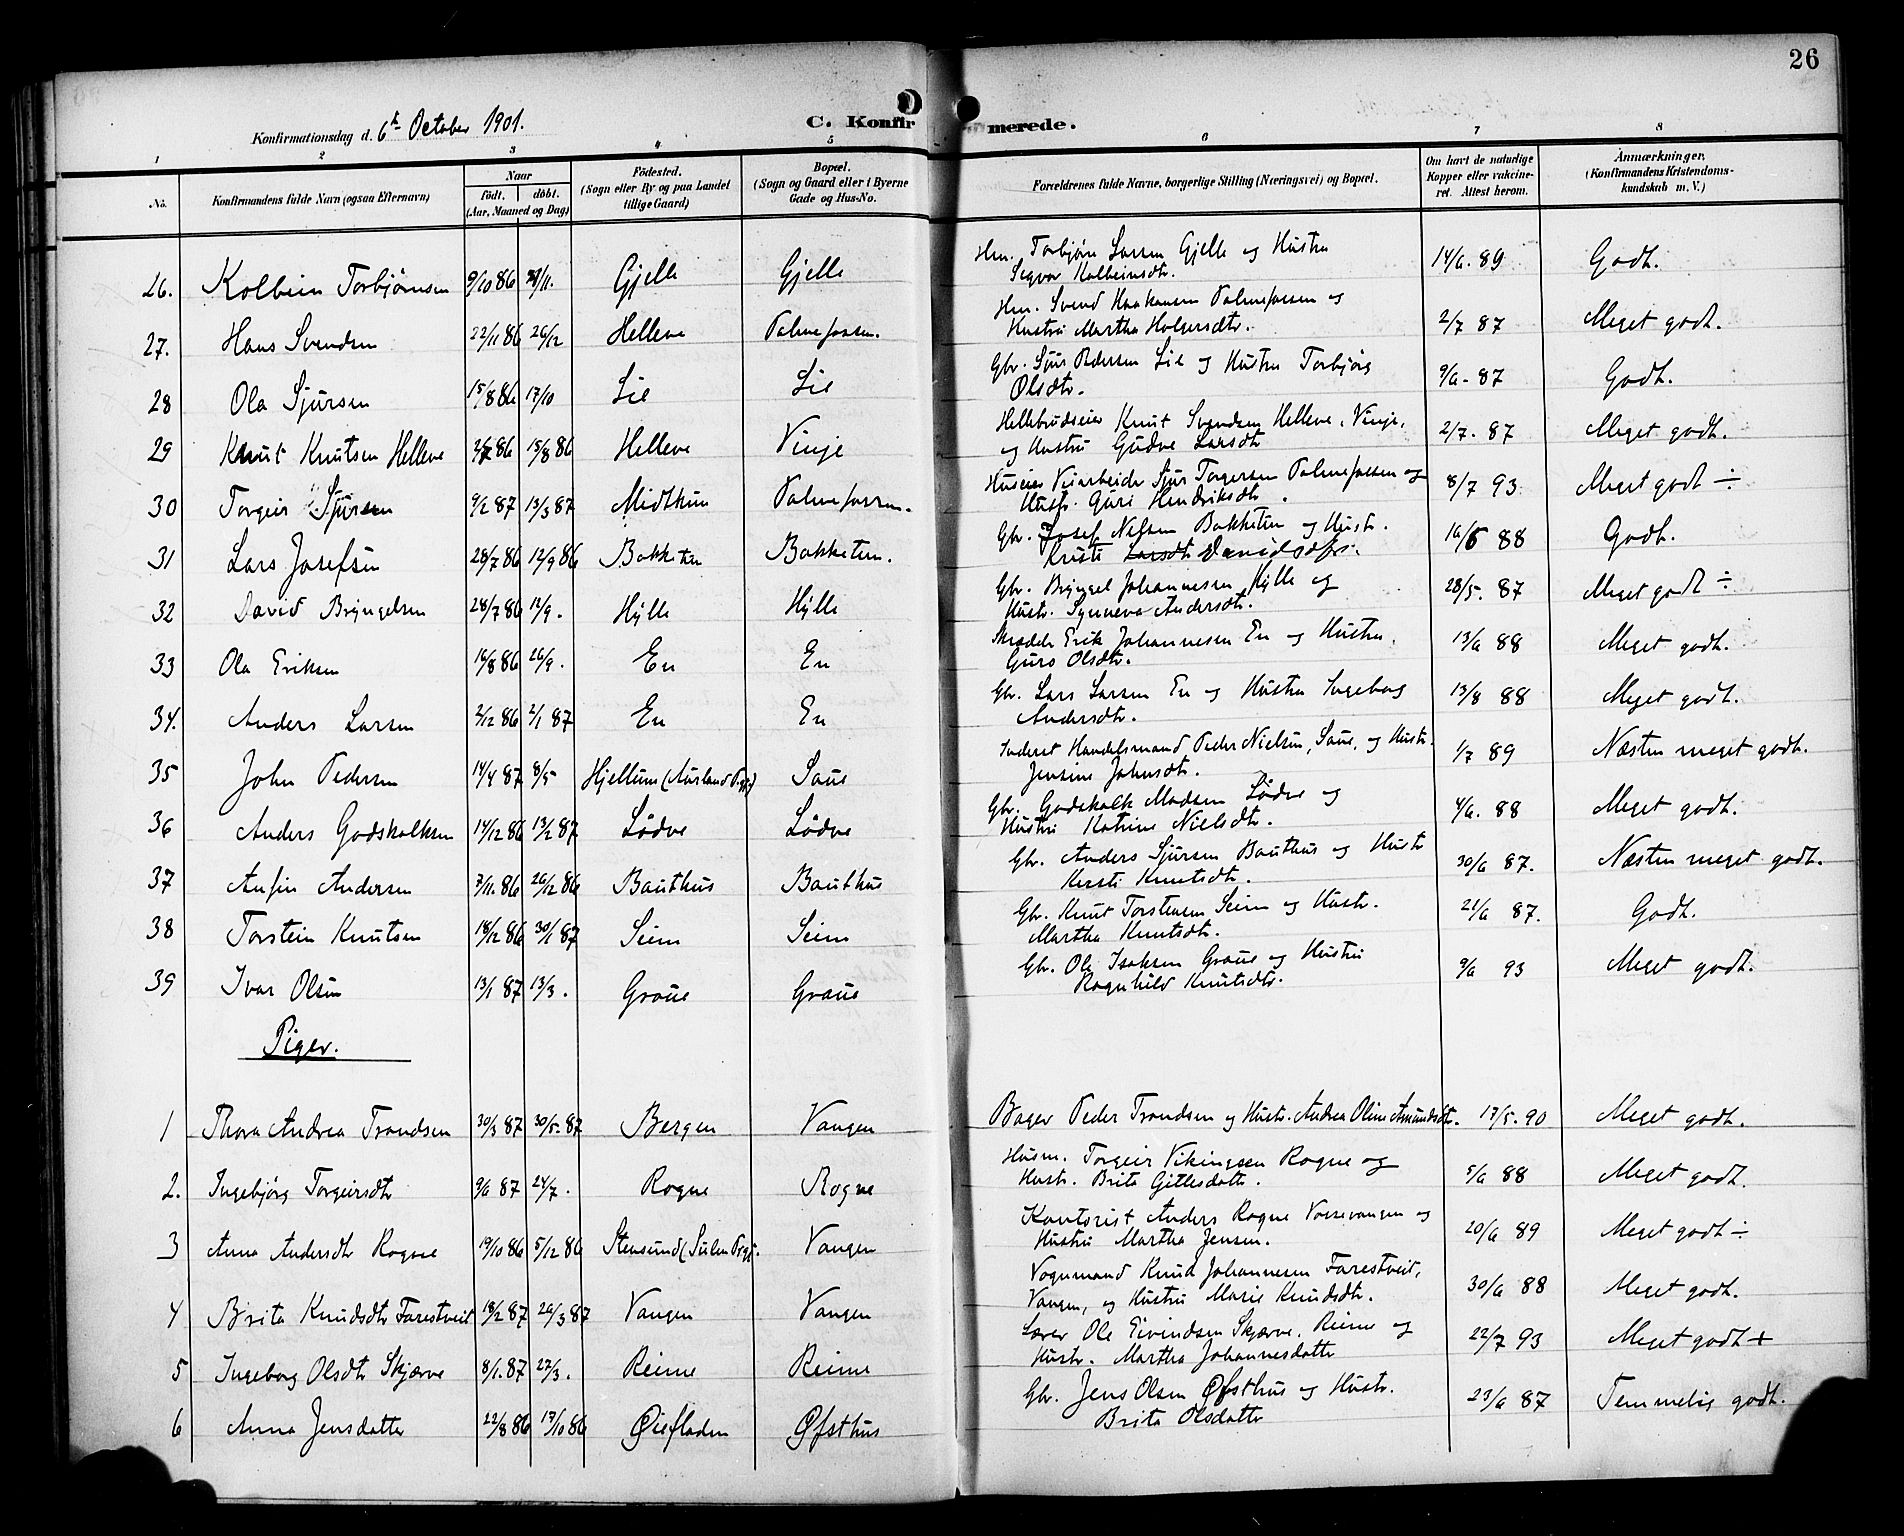 26
Konfirmationsdag d. 6te October 1901.
C. Konfirmerede.
1 2 3 4 5 6 7 8
No.
Konfirmandens fulde Navn (ogsaa Efternavn)
Naar
födt. döbt.
(Aar, Maaned og Dag)
Födested.
(Sogn eller By og paa Landet
tillige Gaard)
Bopæl.
(Sogn og Gaard eller i Byerne
Gade og Hus-No.
Forældrenes fulde Navne, borgerlige Stilling (Næringsvei) og Bopæl.
Om havt de naturlige
Kopper eller vakcine-
ret. Attest herom.
Anmærkninger.
(Konfirmandens Kristendoms-
kundskab m. V.)
26. Kolbein Torbjørnsen 9/10 86 /11. Gjelle Gjelle Hm. Torbjørn Larsen Gjelle og Hustru
Segvor Kolbeinsdtr. 14/6. 89 Godt.
27. Hans Svendsen 22/11 86 26/12 Helleve Palmefossen. Hm. Svend Haakonsen Palmefossen og
Hustru Martha Holgersdtr. 2/7 87 Meget godt.
28 Ola Sjursen 15/8 86 17/10 Lie Lie Gbr. Sjur Pedersen Lie og Hustru Torbjørg
Olsdtr. 9/6- 87 Godt.
29 Knut Knutsen Helleve 2/7 86 15/8 86 Helleve Vinje Hellebrudseier Knut Svendsen Helleve, Vinje,
og Hustru Gudve Larsdtr 2/7. 87 Meget godt.
30 Torgeir Sjursen 9/2 87 13/3 87 Midtkun Palmefossen. Huseier Veiarbeider Sjur Torgersen Palmefossen og
Hustr. Guri Hendriksdtr. 8/7 93 Meget godt ÷
31 Lars Josefsen 28/7 86 12/9 86 Bakketun Bakketun. Gbr. Josef Nilsen Bakketun og Hustr.
Kristi Larsdtr Davidsdtr. 16/6 88 Godt.
32 David Bryngelsen 28/7 86 12/9. Hylle Hylle Gbr. Bryngel Johannessen Hylle og
Hustr. Synneva Andersdtr. 28/5. 87 Meget godt ÷
33 Ola Eriksen 16/8 86 26/9. En En Skræder Erik Johannesen En og Hustru.
Guro Olsdtr. 13/6 88 Meget godt.
34. Anders Larsen 2/12 86 2/1 87 En En Gbr. Lars Larsen En og Hustru Ingeborg
Andersdtr. 13/8 88 Meget godt.
35 John Pedersen 14/4 87 8/5 Hjellum (Aurland Prgj.) Saue Inderst Handelsmand Peder Nielsen, Saue, og Hustr.
Jensine Johnsdtr. 1/7 89 Næsten meget godt.
36 Anders Godskalksen 14/12 86 13/2 87 Lödve Lödve Gbr. Godskalk Madsen Lödve og
Hustru Katrine Nielsdtr. 4/6. 88 Meget godt.
37 Anfin Andersen 7/11. 86 26/12 86 Bauthus Bauthus Gbr. Anders Sjursen Bauthus og Hustr
Kersti Knutsdtr. 30/6 87. Næsten meget godt.
38 Torstein Knutsen 18/12 86 30/1 87 Seim Seim Gbr. Knut Torstensen Seim og Hustr.
Martha Knutsdtr. 21/6 87. Godt.
39 Ivar Olsen 13/1 87 13/3. Graue Graue Gbr. Ole Isaksen Graue og Hustru
Ragnhild Knutsdtr. 9/6 93 Meget godt.
Piger.
1 Thora Andrea Trondsen 30/3 87 30/5. 87 Bergen Vangen Bager Peder Trondsen og Hustr. Andrea Oline Amundsdtr. 17/5. 90 Meget godt.
2. Ingebjörg Torgeirsdtr 9/6 87 24/7. Rogne Rogne Husm. Torgeir Vikingsen Rogne og
Hustr. Brita Gitlesdatter. 5/6 88 Meget godt.
3 Anna Andersdtr Rogne 19/10 86 5/12 86 Stensund (Sulen Prgj. Vangen Kontorist Anders Rogne Vossevangen og
Hustru Martha Jensen. 20/6 89 Meget godt ÷
4 Brita Knudsdtr Farestveit 18/2 87 26/3 87 Vangen Vangen Vognmand Knud Johannesen Farestveit,
Vangen, og Hustru Marie Knudsdtr. 30/6 88 Meget godt.
5 Ingeborg Olsdtr Skjærve 8/1. 87 27/3. Reime Reime Lærer Ole Eivindsen Skjærve, Reime og
Hustr. Martha Johannesdatter 22/7 93 Meget godt +
6 Anna Jensdatter 22/8 86 17/10 86 Øiefladen Øfsthus Gbr. Jens Olsen Øfsthus og Hustr.
Brita Olsdatter 23/6 87 Temmelig godt.